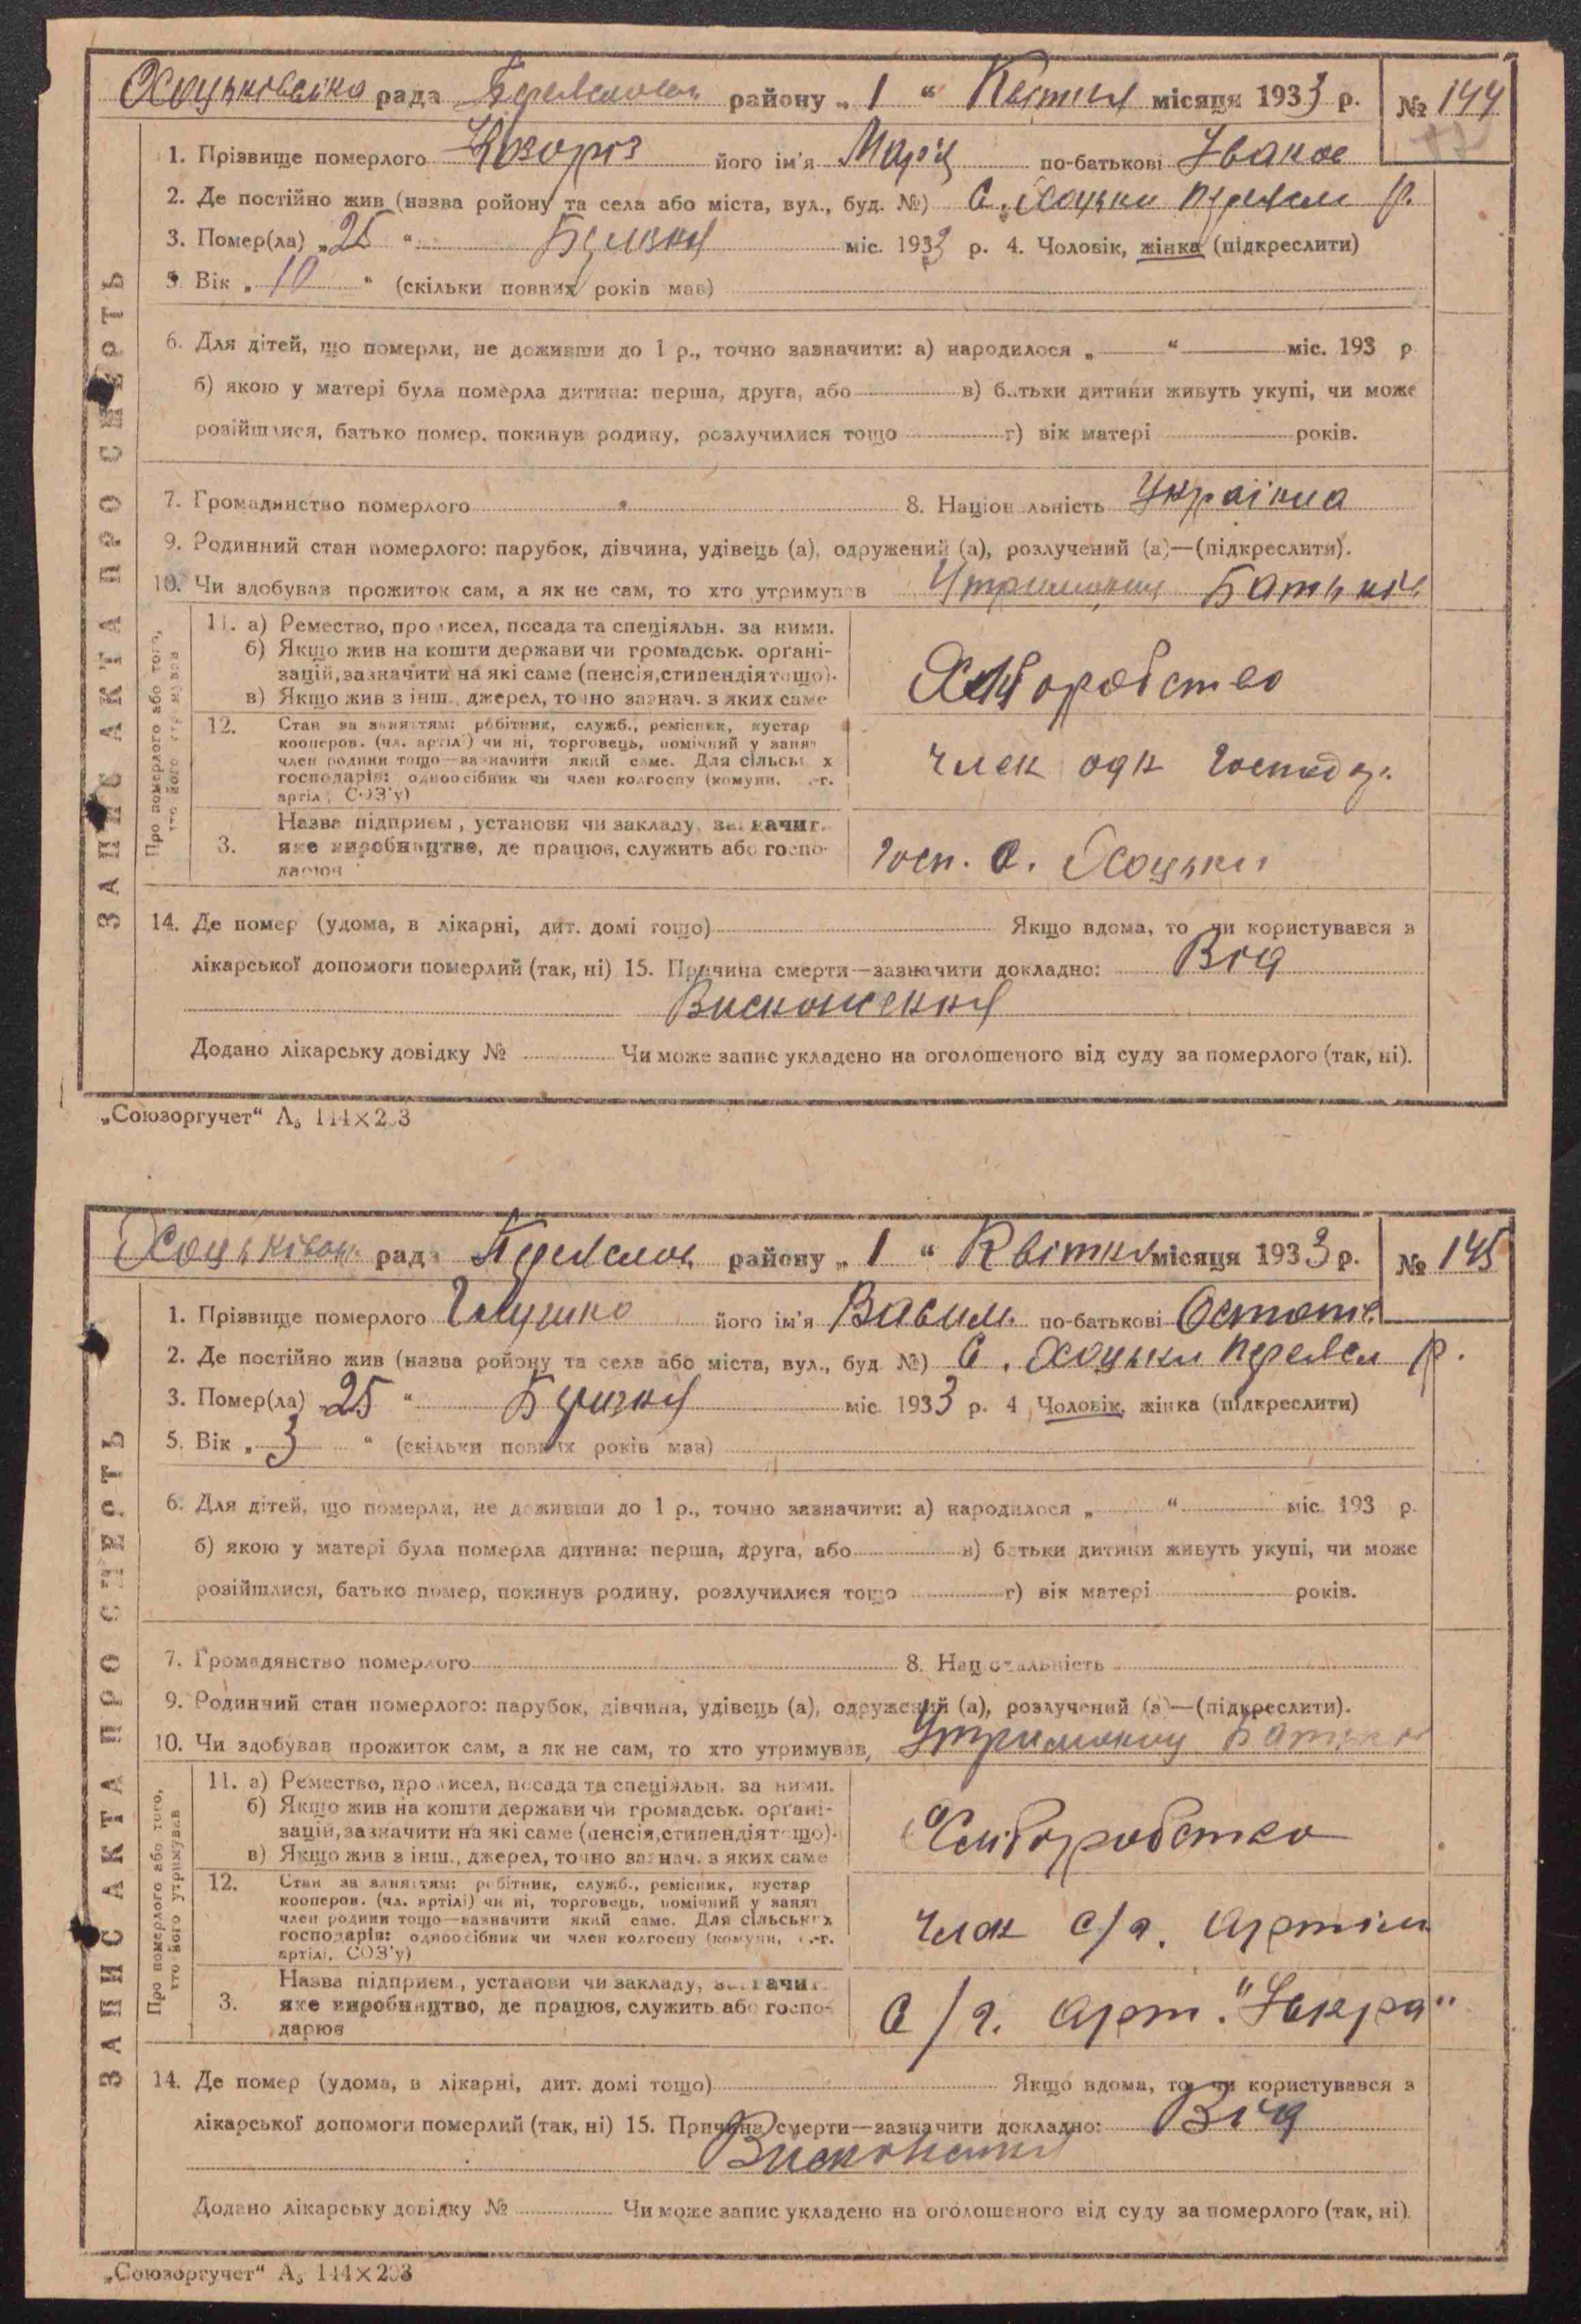 Хоцьківська рада Переяслов. району „ 1 “ Квітня місяця 1933 р. № 144
1. Прізвище померлого Козоріз його ім'я Марія по-батькові Іванов
2. Де постійно жив (назва ройону та села або міста, вул., буд. №) С. Хоцьки Переясл р.
3. Помер(ла) „ 25 “ Березня міс. 1933 р. 4. Чоловік, жінка (підкреслити)
5. Вік „ 10 “ (скільки повних років мав)
6. Для дітей, що померли, не доживши до 1 р., точно зазначити: а) народилося „ “ міс. 193 р.
б) якою у матері була померла дитина: перша, друга, або в) батьки дитини живуть укупі, чи може
розійшлися, батько помер, покинув родину, розлучилися тощо г) вік матері років.
7. Громадянство померлого 8. Національність Україниа
9. Родинний стан померлого: парубок, дівчина, удівець (а), одружений (а), розлучений (а)—(підкреслити).
10. Чи здобував прожиток сам, а як не сам, то хто утримував Утриманиц Батьків
ЗАПИС АКТА ПРО СМЕРТЬ
Про померлого або того, хто його утримував
11. а) Ремество, промисел, посада та спеціяльн. за ними.
б) Якщо жив на кошти держави чи громадськ. органі-
зацій, зазначити на які саме (пенсія, стипендія тощо).
в) Якщо жив з інш. джерел, точно зазнач. з яких саме
Хліборобство
12. Стан за заняттям: робітник, служб., ремісник, кустар
кооперов. (чл. артілі) чи ні, торговець, помічний у занят
член родини тощо—зазначити який саме. Для сільських
господарів: одноосібник чи член колгоспу (комуни, с.-г.
артілі, СОЗ'у)
Член одн господар.
3. Назва підприєм., установи чи закладу, зазначит.
яке виробництво, де працюв, служить або госпо-
дарюв
Госп. с. Хоцьки
14. Де помер (удома, в лікарні, дит. домі тощо) Якщо вдома, то чи користувався з
лікарської допомоги померлий (так, ні) 15. Причина смерти—зазначити докладно: Від
Виснаження
Додано лікарську довідку № Чи може запис укладено на оголошеного від суду за померлого (так, ні).
„Союзоргучет“ А₅ 144×203
Хоцьківськ. рада Переяслов. району „ 1 “ Квітня місяця 1933 р. № 145
1. Прізвище померлого Глушко його ім'я Васил. по-батькові Остапов.
2. Де постійно жив (назва ройону та села або міста, вул., буд №) С. Хоцьки Переясл р.
3. Помер(ла) 25 “ Березня міс. 1933 р. 4 Чоловік, жінка (підкреслити)
5. Вік „ 3 “ (скільки повних років мав)
6. Для дітей, що померли, не доживши до 1 р., точно зазначити: а) народилося „ “ міс. 193 р.
б) якою у матері була померла дитина: перша, друга, або в) батьки дитини живуть укупі, чи може
розійшлися, батько помер, покинув родину, розлучилися тощо г) вік матері років.
7. Громадянство померлого 8. Національність
9. Родинний стан померлого: парубок, дівчина, удівець (а), одружений (а), розлучений (а)—(підкреслити).
10. Чи здобував прожиток сам, а як не сам, то хто утримував, Утриманиц Батьків
ЗАПИС АКТА ПРО СМЕРТЬ
Про померлого або того, хто його утримував
11. а) Ремество, промисел, посада та спеціяльн. за ними.
б) Якщо жив на кошти держави чи громадськ. органі-
зацій, зазначити на які саме (пенсія, стипендія тощо).
в) Якщо жив з інш., джерел, точно зазнач. з яких саме
Хліборобство
12. Стан за заняттям: робітник, служб., ремісник, кустар
кооперов. (чл. артілі) чи ні, торговець, помічний у занят
член родини тощо—зазначити який саме. Для сільських
господарів: одноосібник чи член колгоспу (комуни, с.-г.
артілі, СОЗ'у)
член с/г. артіли
3. Назва підприєм., установи чи закладу, зазначит.
яке виробництво, де працюв, служить або госпо-
дарюв
с/г. арт. "Іскра"
14. Де помер (удома, в лікарні, дит. домі тощо) Якщо вдома, то чи користувався з
лікарської допомоги померлий (так, ні) 15. Причина смерти—зазначити докладно: Від
Виснаження
Додано лікарську довідку № Чи може запис укладено на оголошеного від суду за померлого (так, ні).
„Союзоргучет“ А₅ 144×203